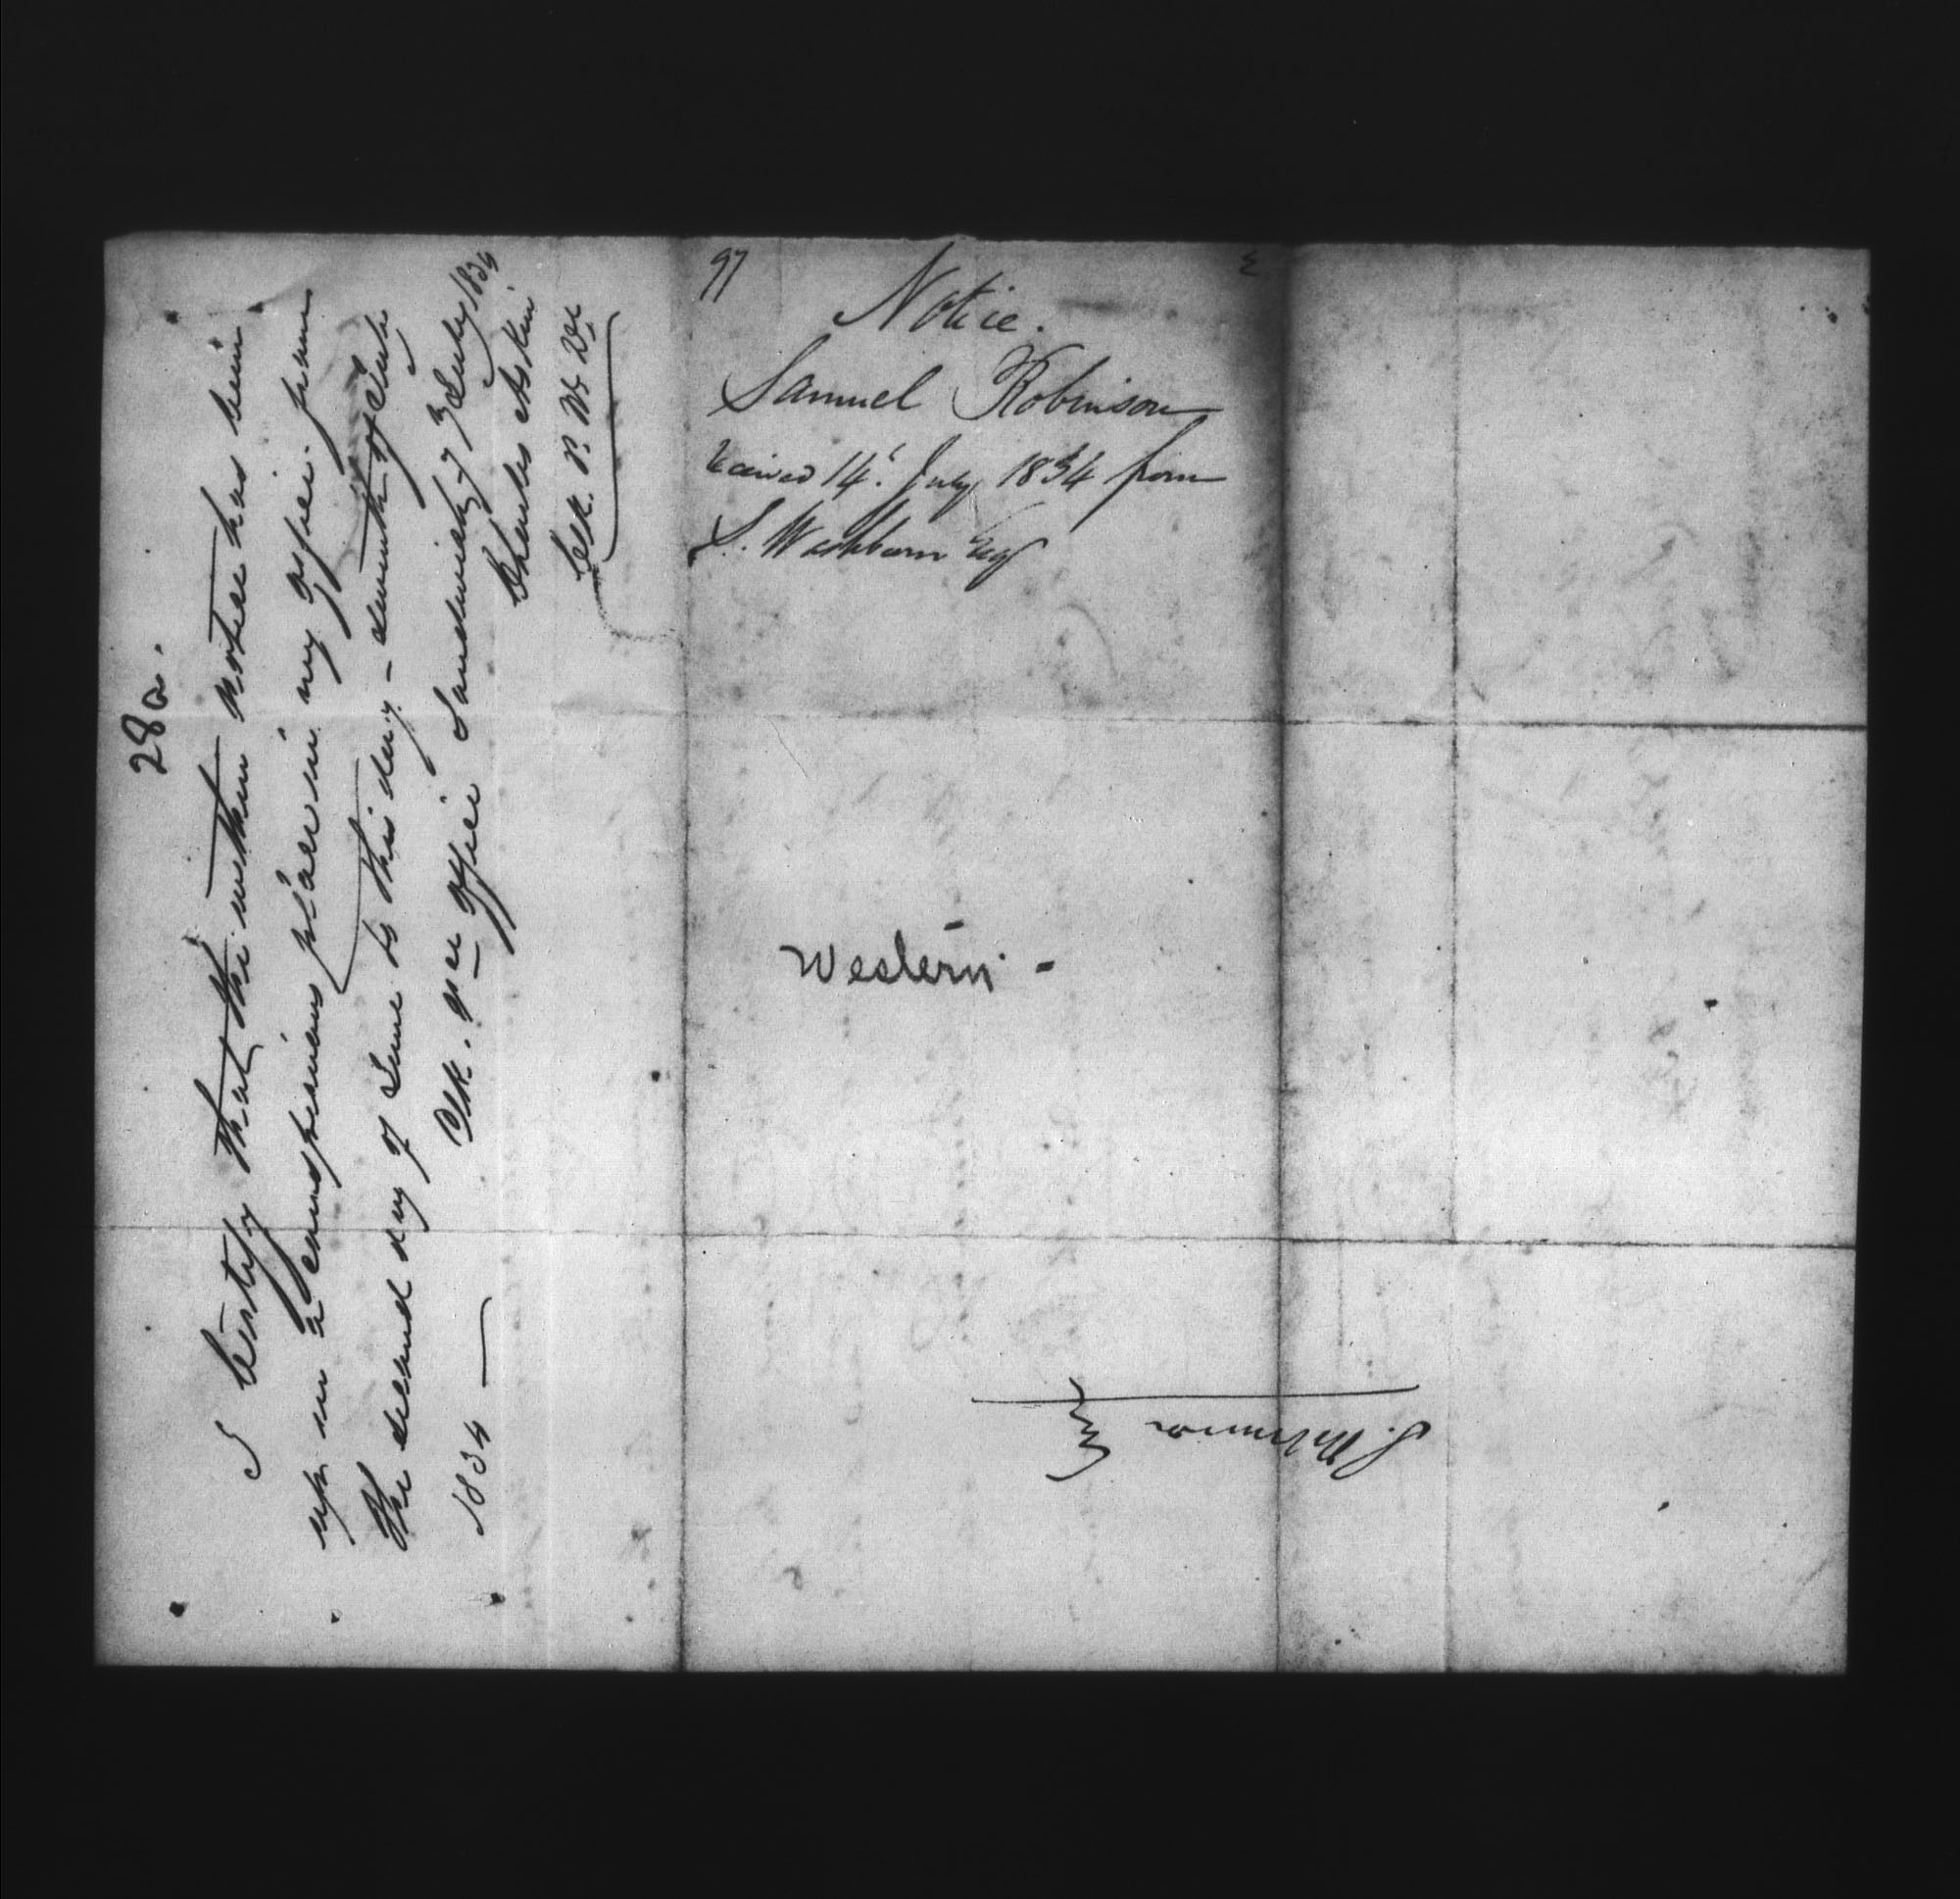 28a.
I Certify that the within Notice has been
up in a conspicuous place in my office from
the second day of June to this day - seventh of July
1834 — Clk. Pce Office Sandwich 7 July 1834
Charles Askin
Clk. P. W. D.
97
Notice.
Samuel Robinson
received 14t. July 1834 from
S. Washburn Esq
Western -